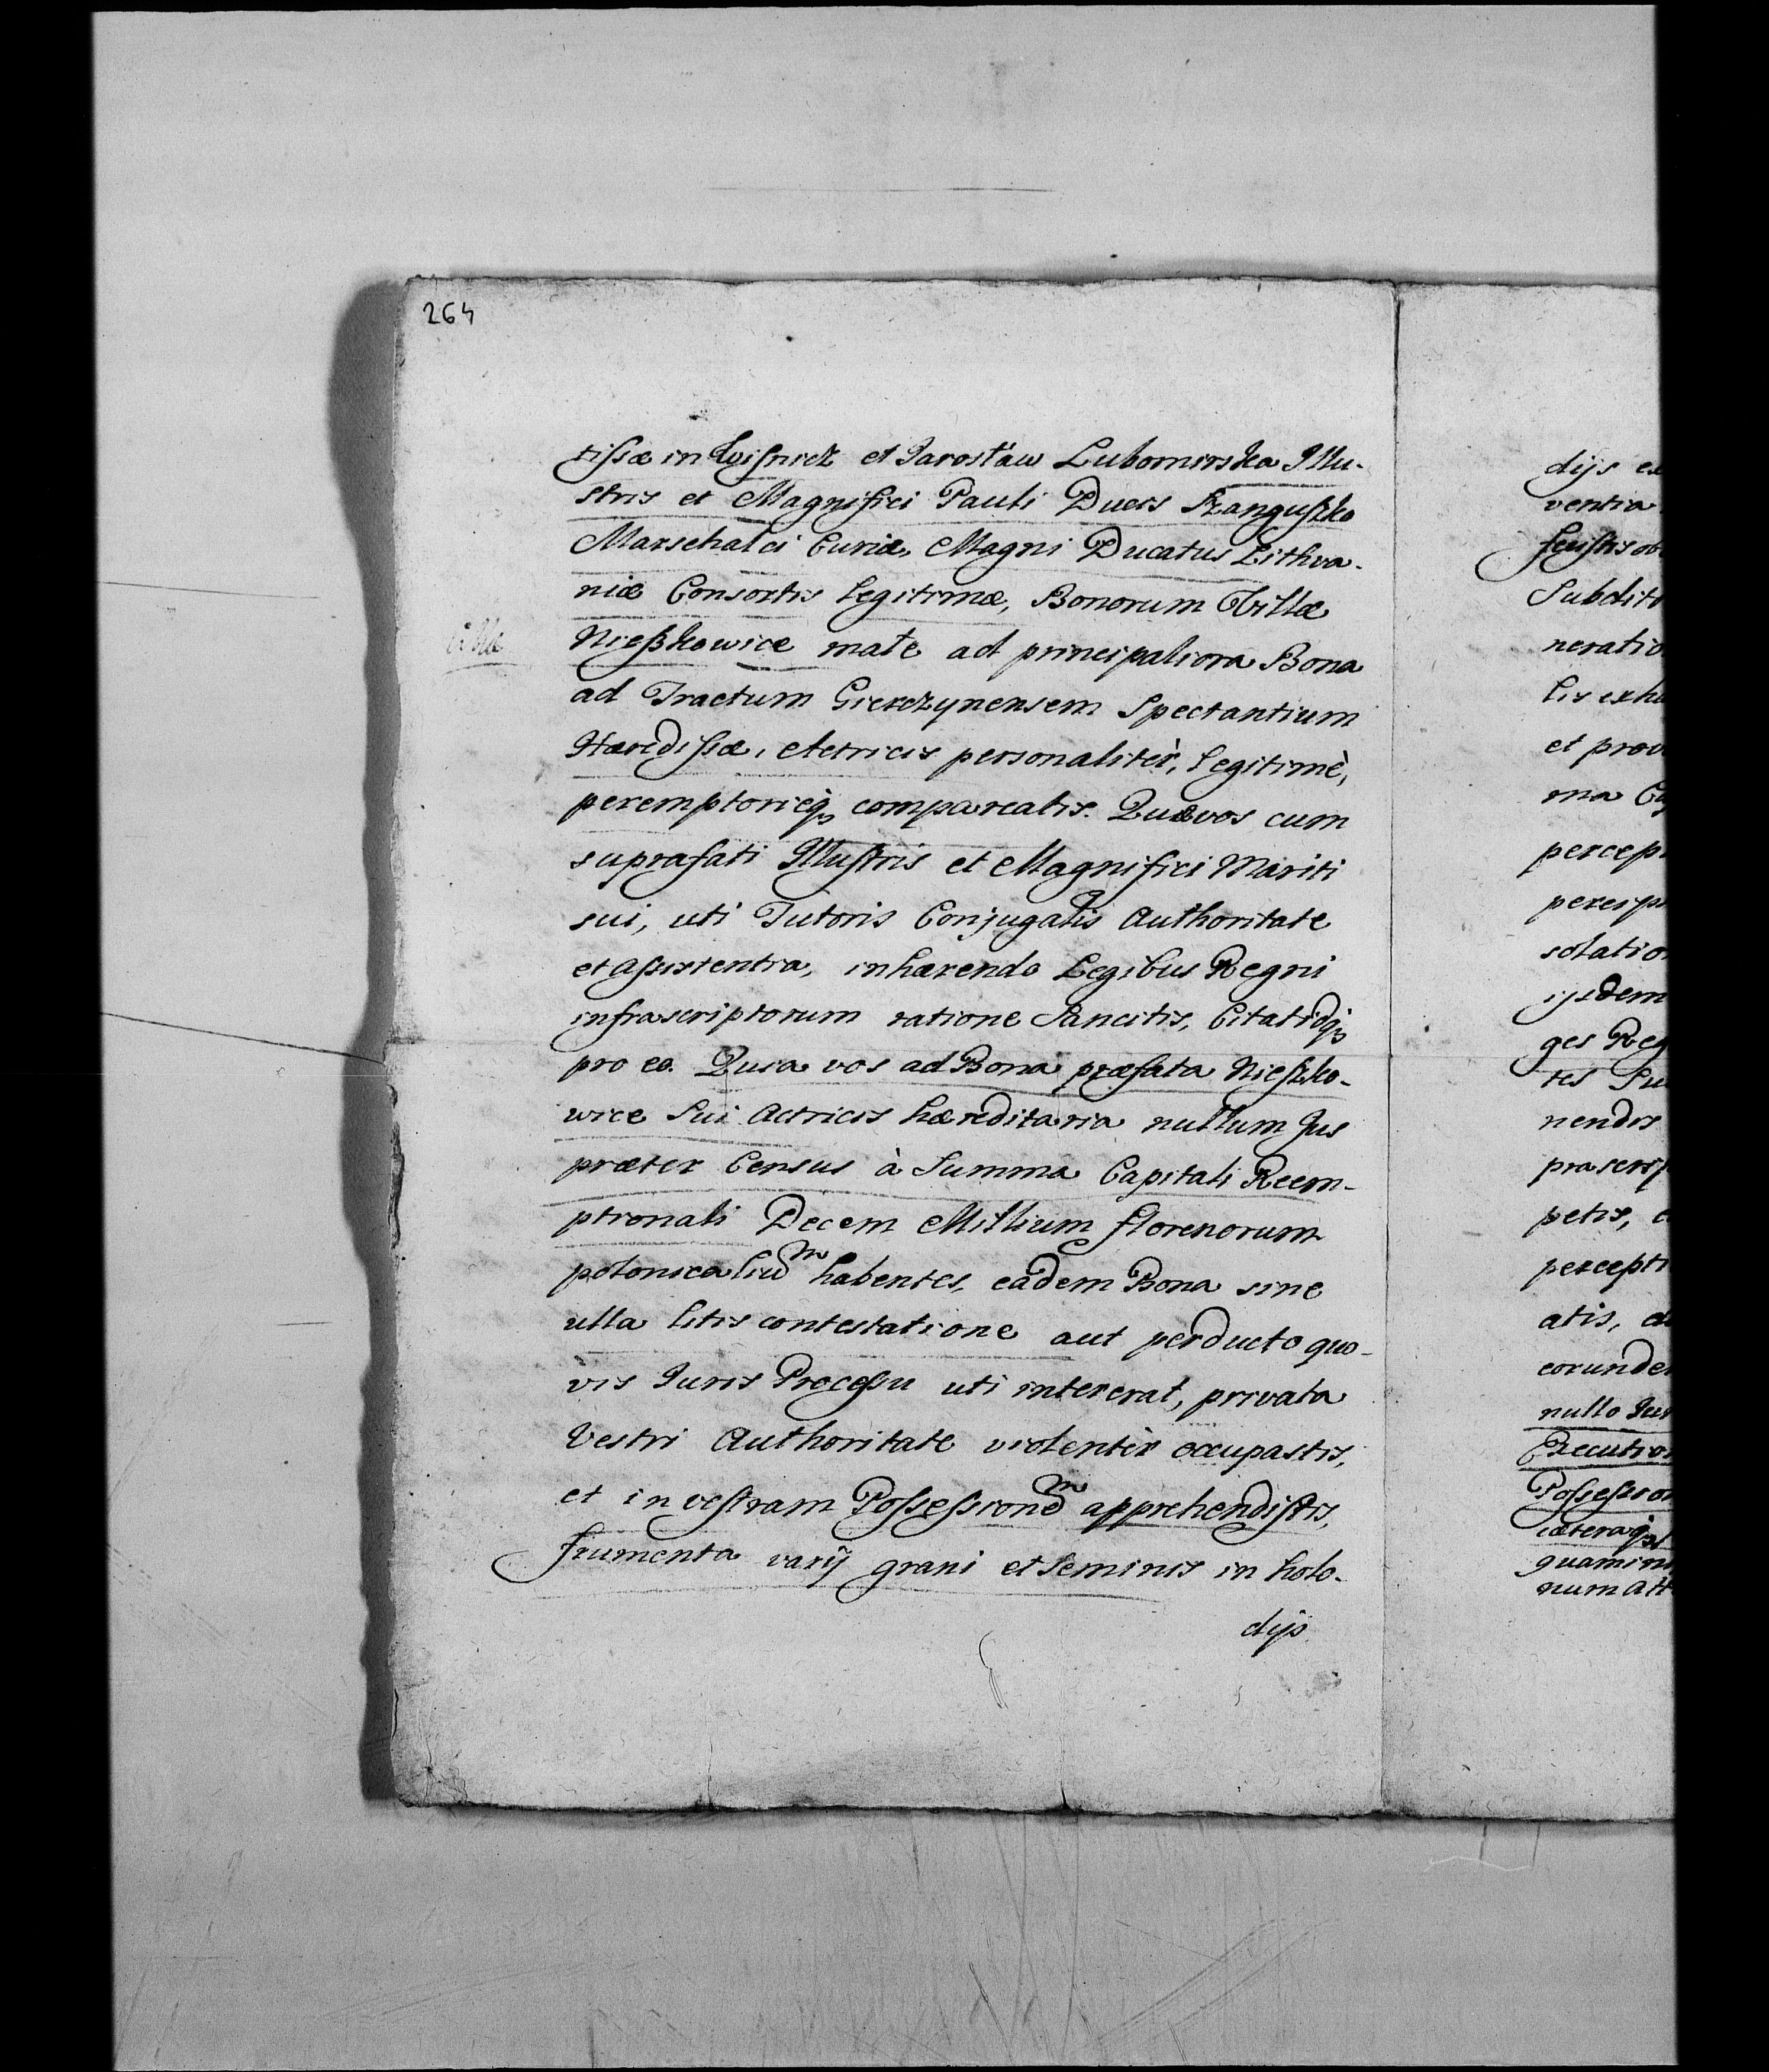 264
tissæ in Wisnicz et Jarosław Lubomirska Illu-
stris et Magnifici Pauli Ducis Szanguszko
Marschalci Curiæ, Magni Ducatus Lithva-
niæ Consortis legitimæ, Bonorum Villæ
Nieszkowice mate ad principaliora Bona
ad Tractum Gierczynensem Spectantium
Hæredissæ, Actricis personalitèr, legitimè,
peremptorieq; compareatis. Quæ vos cum
suprafati Illustris et Magnifici Mariti
sui, uti Tutoris Conjugalis Authoritate
et assistentia, inhærendo Legibus Regni
infrascriptorum ratione Sancitis, Citat idq;
pro eo. Quia vos ad Bona præfata Nieszko-
wice Sui Actricis hæreditaria nullum Jus
præter Census à Summa Capitali Reem-
ptionali Decem Millium florenorum
polonicaliũm habentes, eadem Bona sine
ulla litis contestatione aut perducto quo-
vis Juris Processu uti intererat, privata
Vestri Authoritate violentèr occupastis,
et in vestram Possessionem apprehendistis,
frumenta varÿ grani et seminis in holo-
dijs
dijs
ventia
fecistis
Subdit
neratio
lis exha
et prov
ma
percep
percip
solatio
ijsdem
ges Reg
tes Su
nendis
prascrip
petis,
percepti
atis,
eorunde
nullo Jur
Executio
Possessio
cæteraq;
quamim
num att